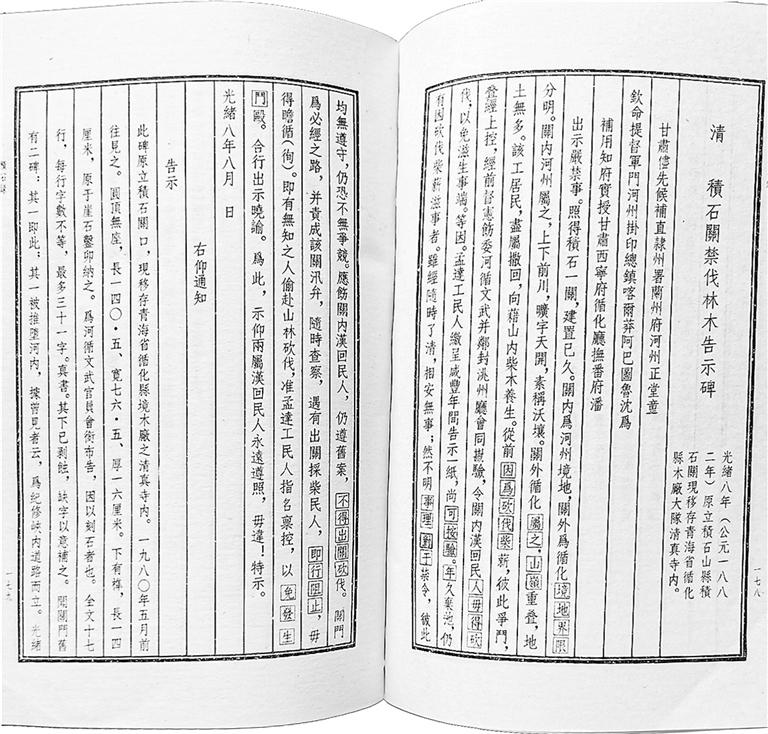 清　積石關禁伐林木告示碑
光緒八年（公元一八八
二年）原立積石山縣積
石關現移存青海省循化
縣木廠大隊清真寺內。
甘肅儘先候補直隸州署蘭州府河州正堂童
欽命提督軍門河州掛印總鎮喀爾莽阿巴圖魯沈爲
補用知府實授甘肅西寧府循化廳撫番府潘
出示嚴禁事。照得積石一關，建置已久。關內爲河州境地，關外爲循化境地界限
分明。關內河州屬之，上下前川，曠字天開，素稱沃壤。關外循化屬之，山嶺重叠，地
土無多。該工居民，盡屬撒回，向藉山內柴木養生。從前因爲砍伐柴薪，彼此爭鬥，
叠經上控，經前督憲飭委河循文武并鄰封洮州廳會同撒驗，令關內漢回民人毋得砍
伐，以免滋生事端。等因。孟達工民人繳呈咸豐年間告示一紙，尚可按驗。年久棄弛，仍
有因砍伐柴薪滋事者。雖經隨時了清，相安無事；然不明事理，對于禁令，彼此
一七八
均無遵守，仍恐不無爭競。應飭關內漢回民人，仍遵舊案，不得出關砍伐。關門
爲必經之路，并責成該關汛弁，隨時查察，遇有出關採柴民人，即行阻止，毋
得瞻循（徇）。即有無知之人偷赴山林砍伐，准孟達工民人指名禀控，以免發生
鬥毆。合行出示曉諭。爲此，示仰兩屬漢回民人永遠遵照，毋違！特示。
光緒八年八月　日
右仰通知
告示
此碑原立積石關口，現移存青海省循化縣境木廠之清真寺內。一九八〇年五月前
往見之。圓頂無座，長一四〇·五、寬七六·五、厚一六厘米。下有榫，長一四
厘米，原于崖石鑿卯納之。爲河循文武官員會銜布告，因以刻石者也。全文十七
行，每行字數不等，最多三十一字。真書。其下已剥蝕，缺字以意補之。聞關門舊
有二碑：其一即此；其一被推墮河內，據曾見者云，爲紀修峽內道路而立。光緒
一七九